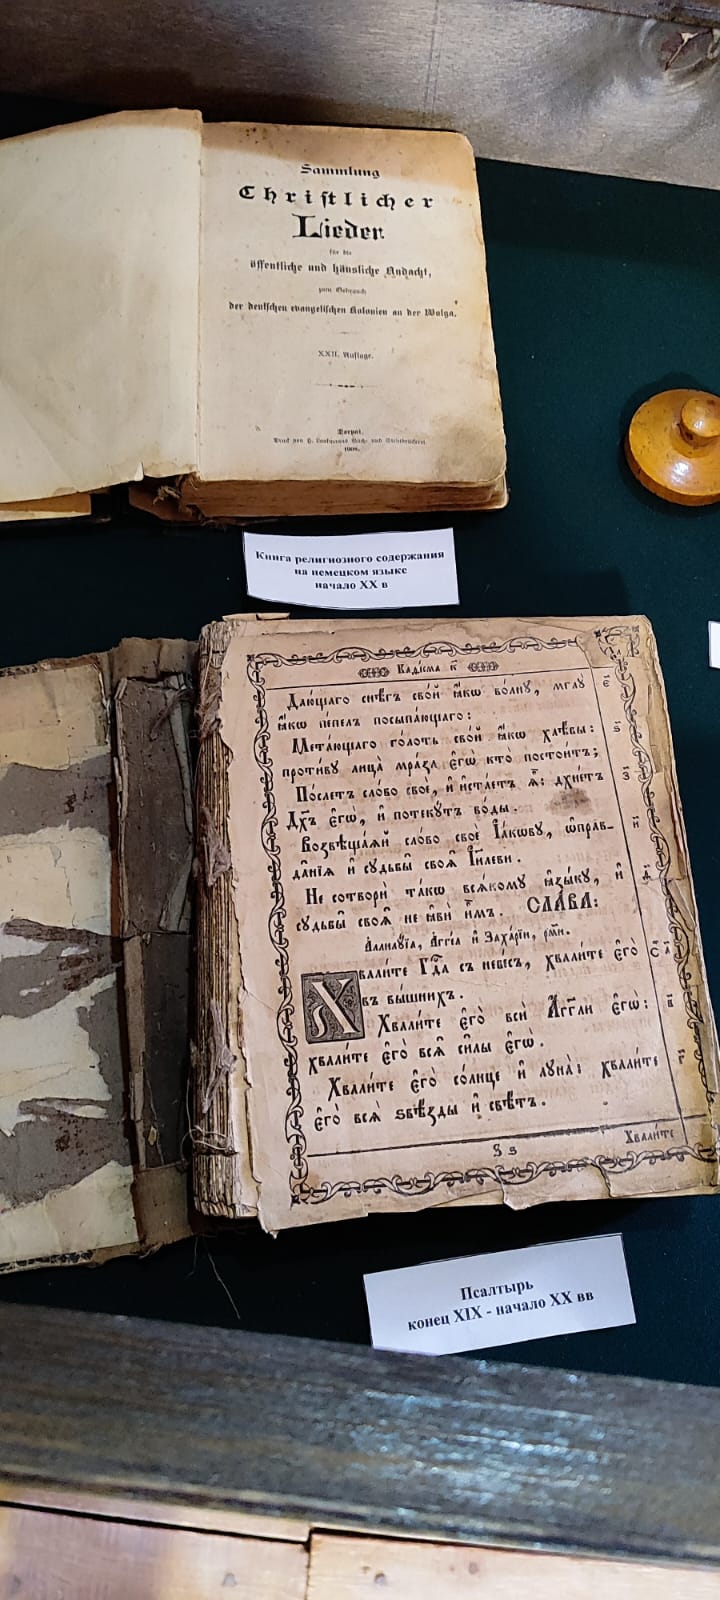 Sammlung
Christlicher
Lieder
für die
öffentliche und häusliche Andacht,
zum Gebrauch
der deutschen evangelischen Kolonien an der Wolga.
XXII. Auflage.
Dorpat.
Druck von H. Laakmanns Buch- und Steindruckerei
Книга религиозного содержания
на немецком языке
начало XX в
Каѳісма к҃
Даю́щаго снѣ́гъ сво́й ꙗ҆́кѡ во́лну, мглꙋ̀ є҃
ꙗ҆́кѡ пе́пелъ посыпа́ющаго:
Мета́ющаго го́лоть сво́й ꙗ҆́кѡ хлѣ́бы: ѕ҃
проти́вꙋ лицꙋ̀ мра́за є҆гѡ̀ кто̀ постои́тъ;
По́слетъ сло́во своѐ, и҆ и҆ста́етъ ѧ҆̀: дхне́тъ з҃
дх҃ъ є҆гѡ̀, и҆ потекꙋ́тъ во́ды.
Возвѣща́ѧй сло́во своѐ І҆а́кѡвꙋ, ѡ҆правда̑- и҃
да̑нїѧ и҆ сꙋдьбы̑ своѧ̑ І҆и҃леви.
Не сотворѝ та́кѡ всѧ́комꙋ ꙗ҆зы́кꙋ, и҆ ѳ҃
сꙋдьбы̑ своѧ̑ не ꙗ҆вѝ и҆̀мъ. СЛА́ВА:
А҆ллилꙋ́їа, А҆гге́а и҆ Заха́рїи, рм҃и.
Хвали́те гд҇а съ небе́съ, хвали́те є҆го̀ а҃
въ вы́шнихъ.
Хвали́те є҆го̀ всѝ А҆́гг҃ли є҆гѡ̀: в҃
хвали́те є҆го̀ всѧ̑ си̑лы є҆гѡ̀.
Хвали́те є҆го̀ со́лнце и҆ лꙋна̀: хвали́те г҃
є҆го̀ всѧ̑ ѕвѣ́зды и҆ свѣ́тъ.
Хвали́те
Псалтырь
конец XIX - начало XX вв